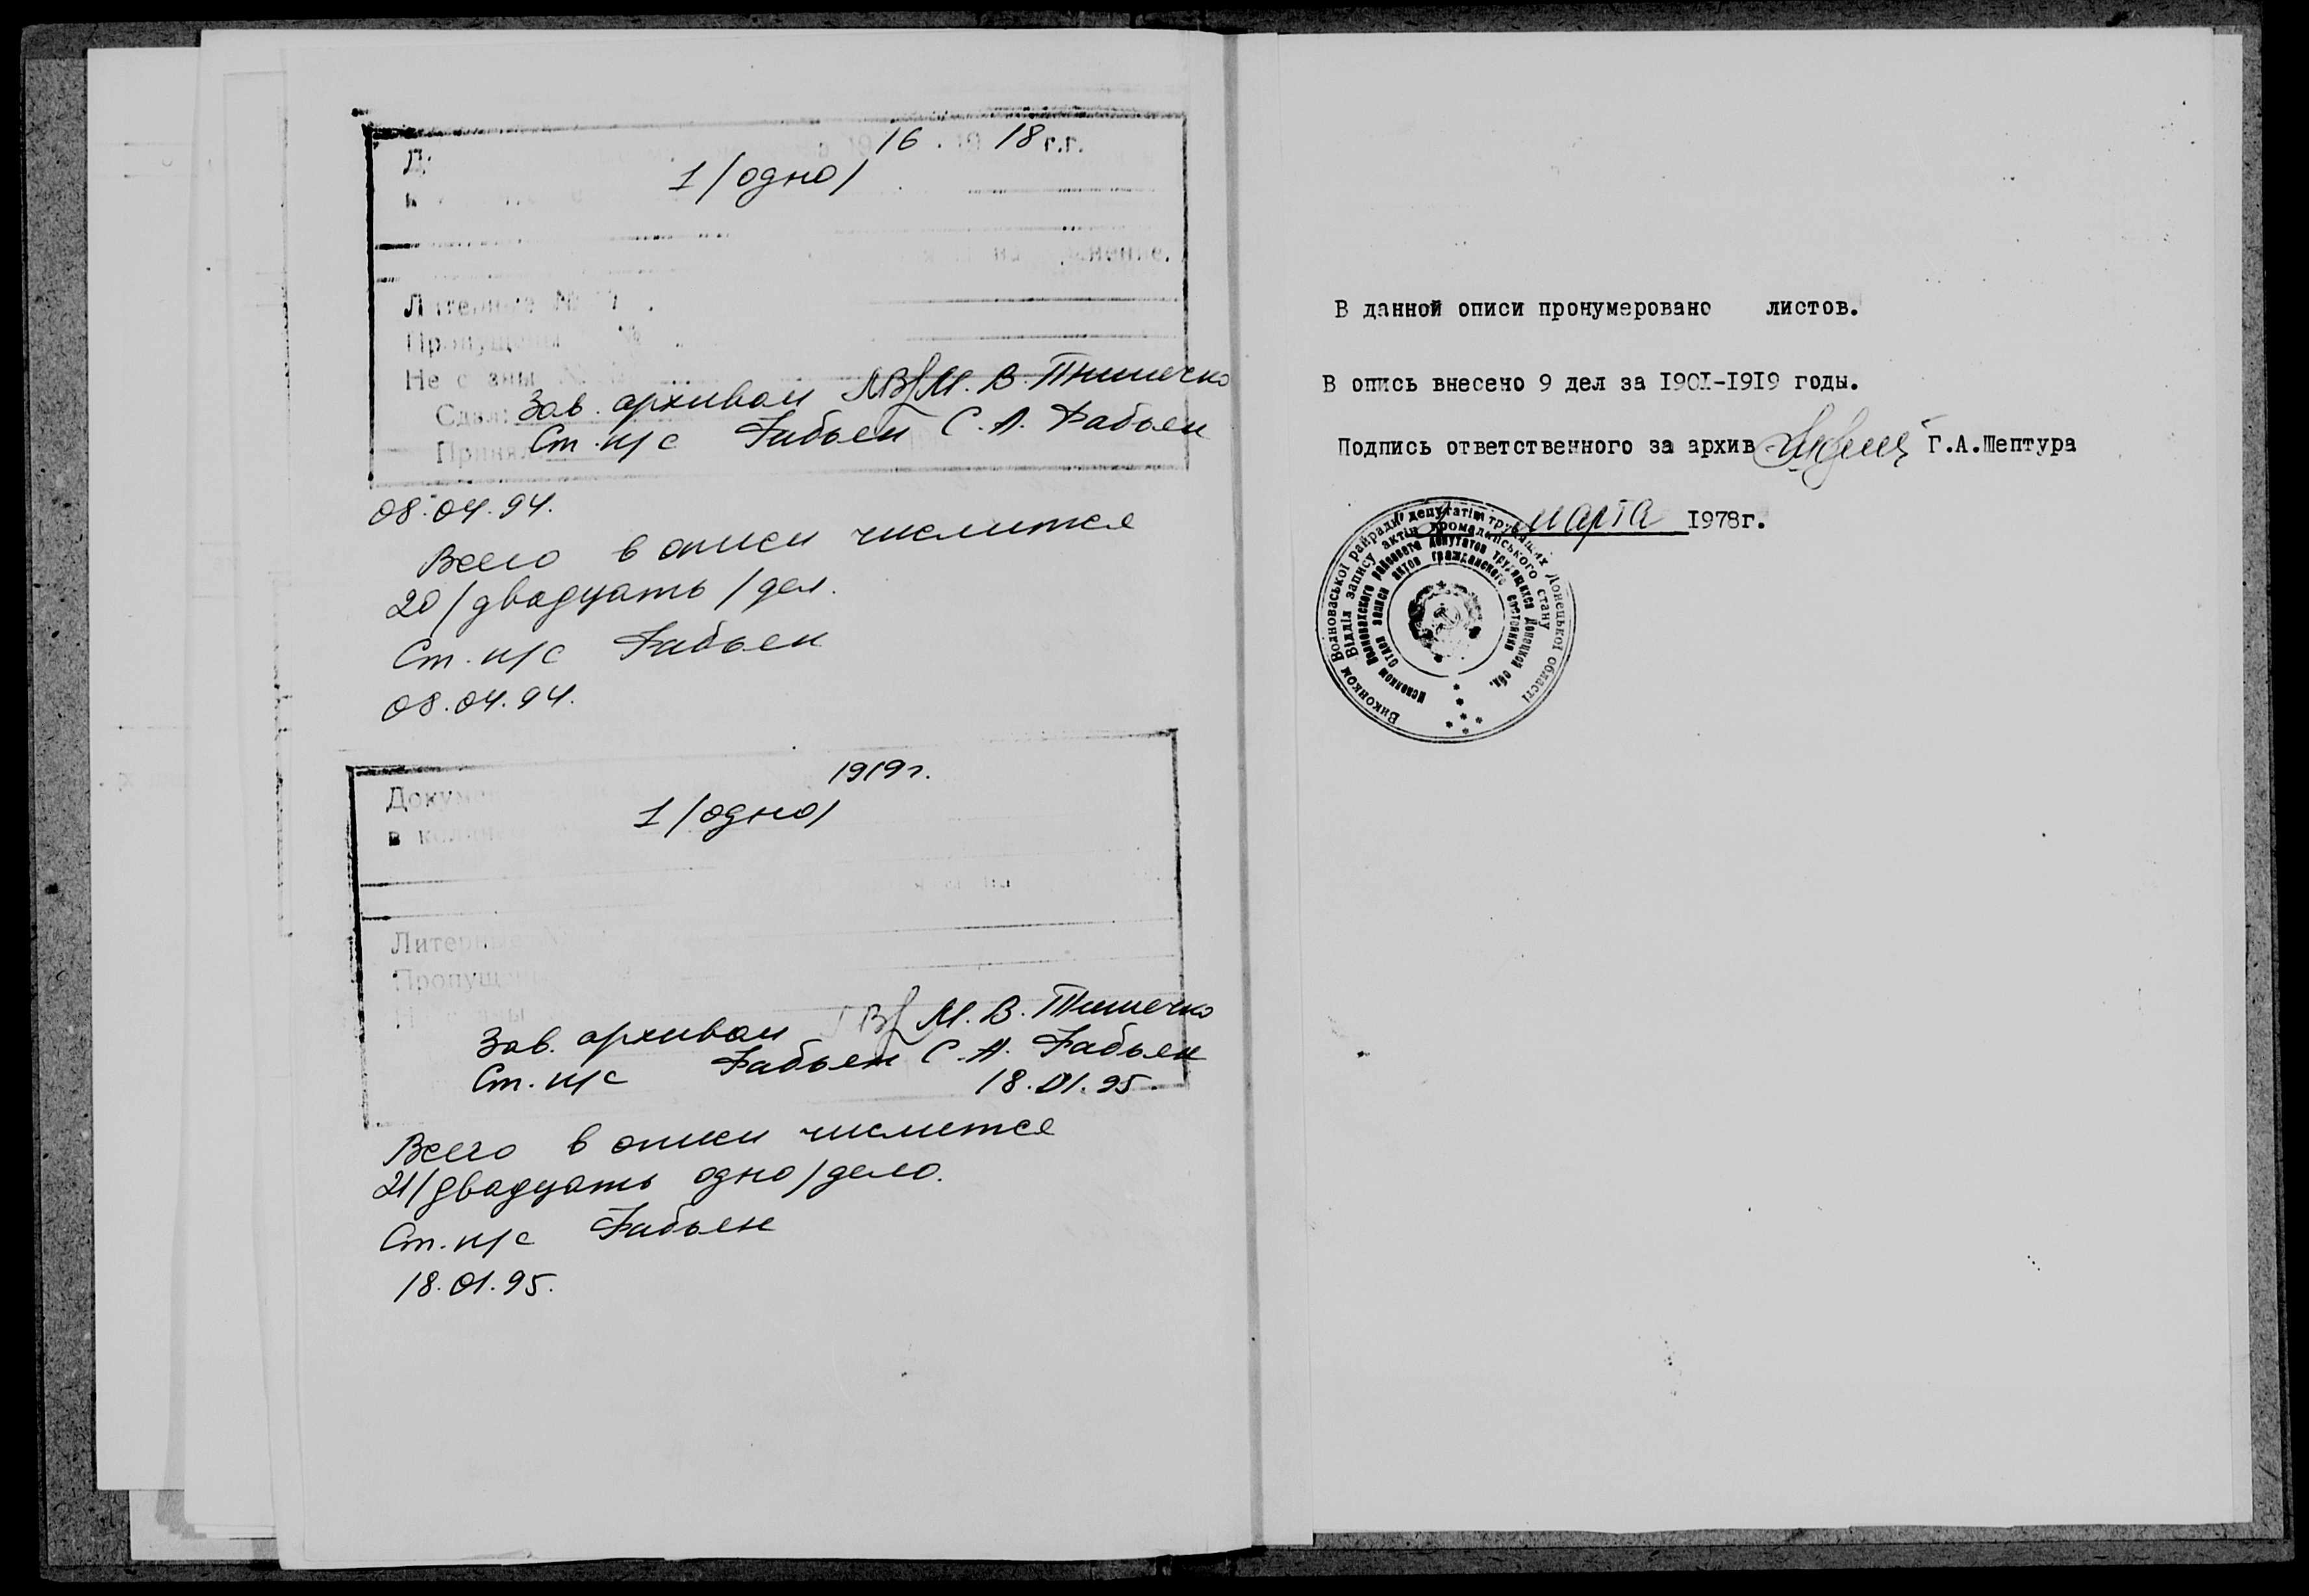 16 . 19 18 г.г.
1 /одно/
нение.
Литерные №
Пропущены №
Не с ны №
Сдал: Зав. архивом М. В. Тимечко
Принял Ст. н/с Фабьен С. А. Фабьен
08.04.94.
Всего в описи числится
20 /двадцать/ дел.
Ст. н/с Фабьен
08.04.94.
1919г.
Докумен
1 /одно/
в колич
Литерные №
Пропущены
Зав. архивом М. В. Тимечко
Ст. н/с Фабьен С. А. Фабьен
18.01.95.
Всего в описи числится
21 /двадцать одно/ дело.
Ст. н/с Фабьен
18.01.95.
В данной описи пронумеровано листов.
В опись внесено 9 дел за 1901-1919 годы.
Подпись ответственного за архив Г.А.Шептура
марта 1978г.
Виконком Волноваської райради депутатів трудящих Донецької області
Відділ запису актів громадянського стану
Исполком Волновахского районного Депутатов трудящихся Донецкой обл.
отдел записи актов гражданского состояния